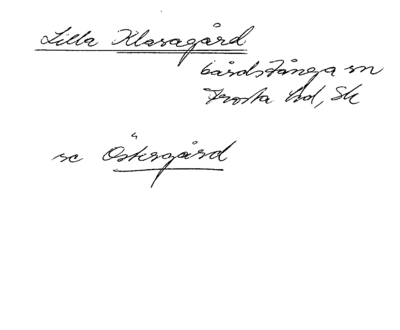 Lilla Klasagård
Gårdstånga sn
Frosta hd, Sk
se Östergård